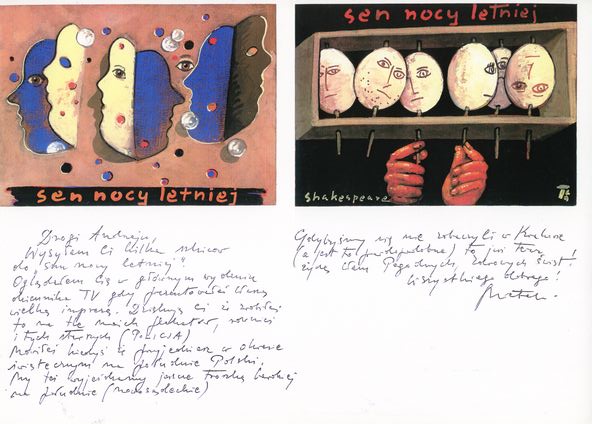 sen nocy letniej
sen nocy letniej
shakespeare
Drogi Andrzeju,
Wysyłam Ci kilka szkiców
do „snu nocy letniej"
Oglądałem Cię w głównym wydaniu
dziennika TV gdy prezentowałeś
wielką imprezę. Dziękuję Ci że zrobiłeś
to na tle moich plakatów, również
i tych starych (POLICJA)
Mówiłeś kiedyś że przyjedziesz w okresie
świątecznym na południe Polski.
My też wyjeżdżamy jeszcze troszkę bardziej
na południe (nowosądeckie)
Gdybyśmy się nie zobaczyli w Krakowie
(a jest to prawdopodobne) to już teraz
życzę Wam Pogodnych, zdrowych świąt!
Wszystkiego dobrego!